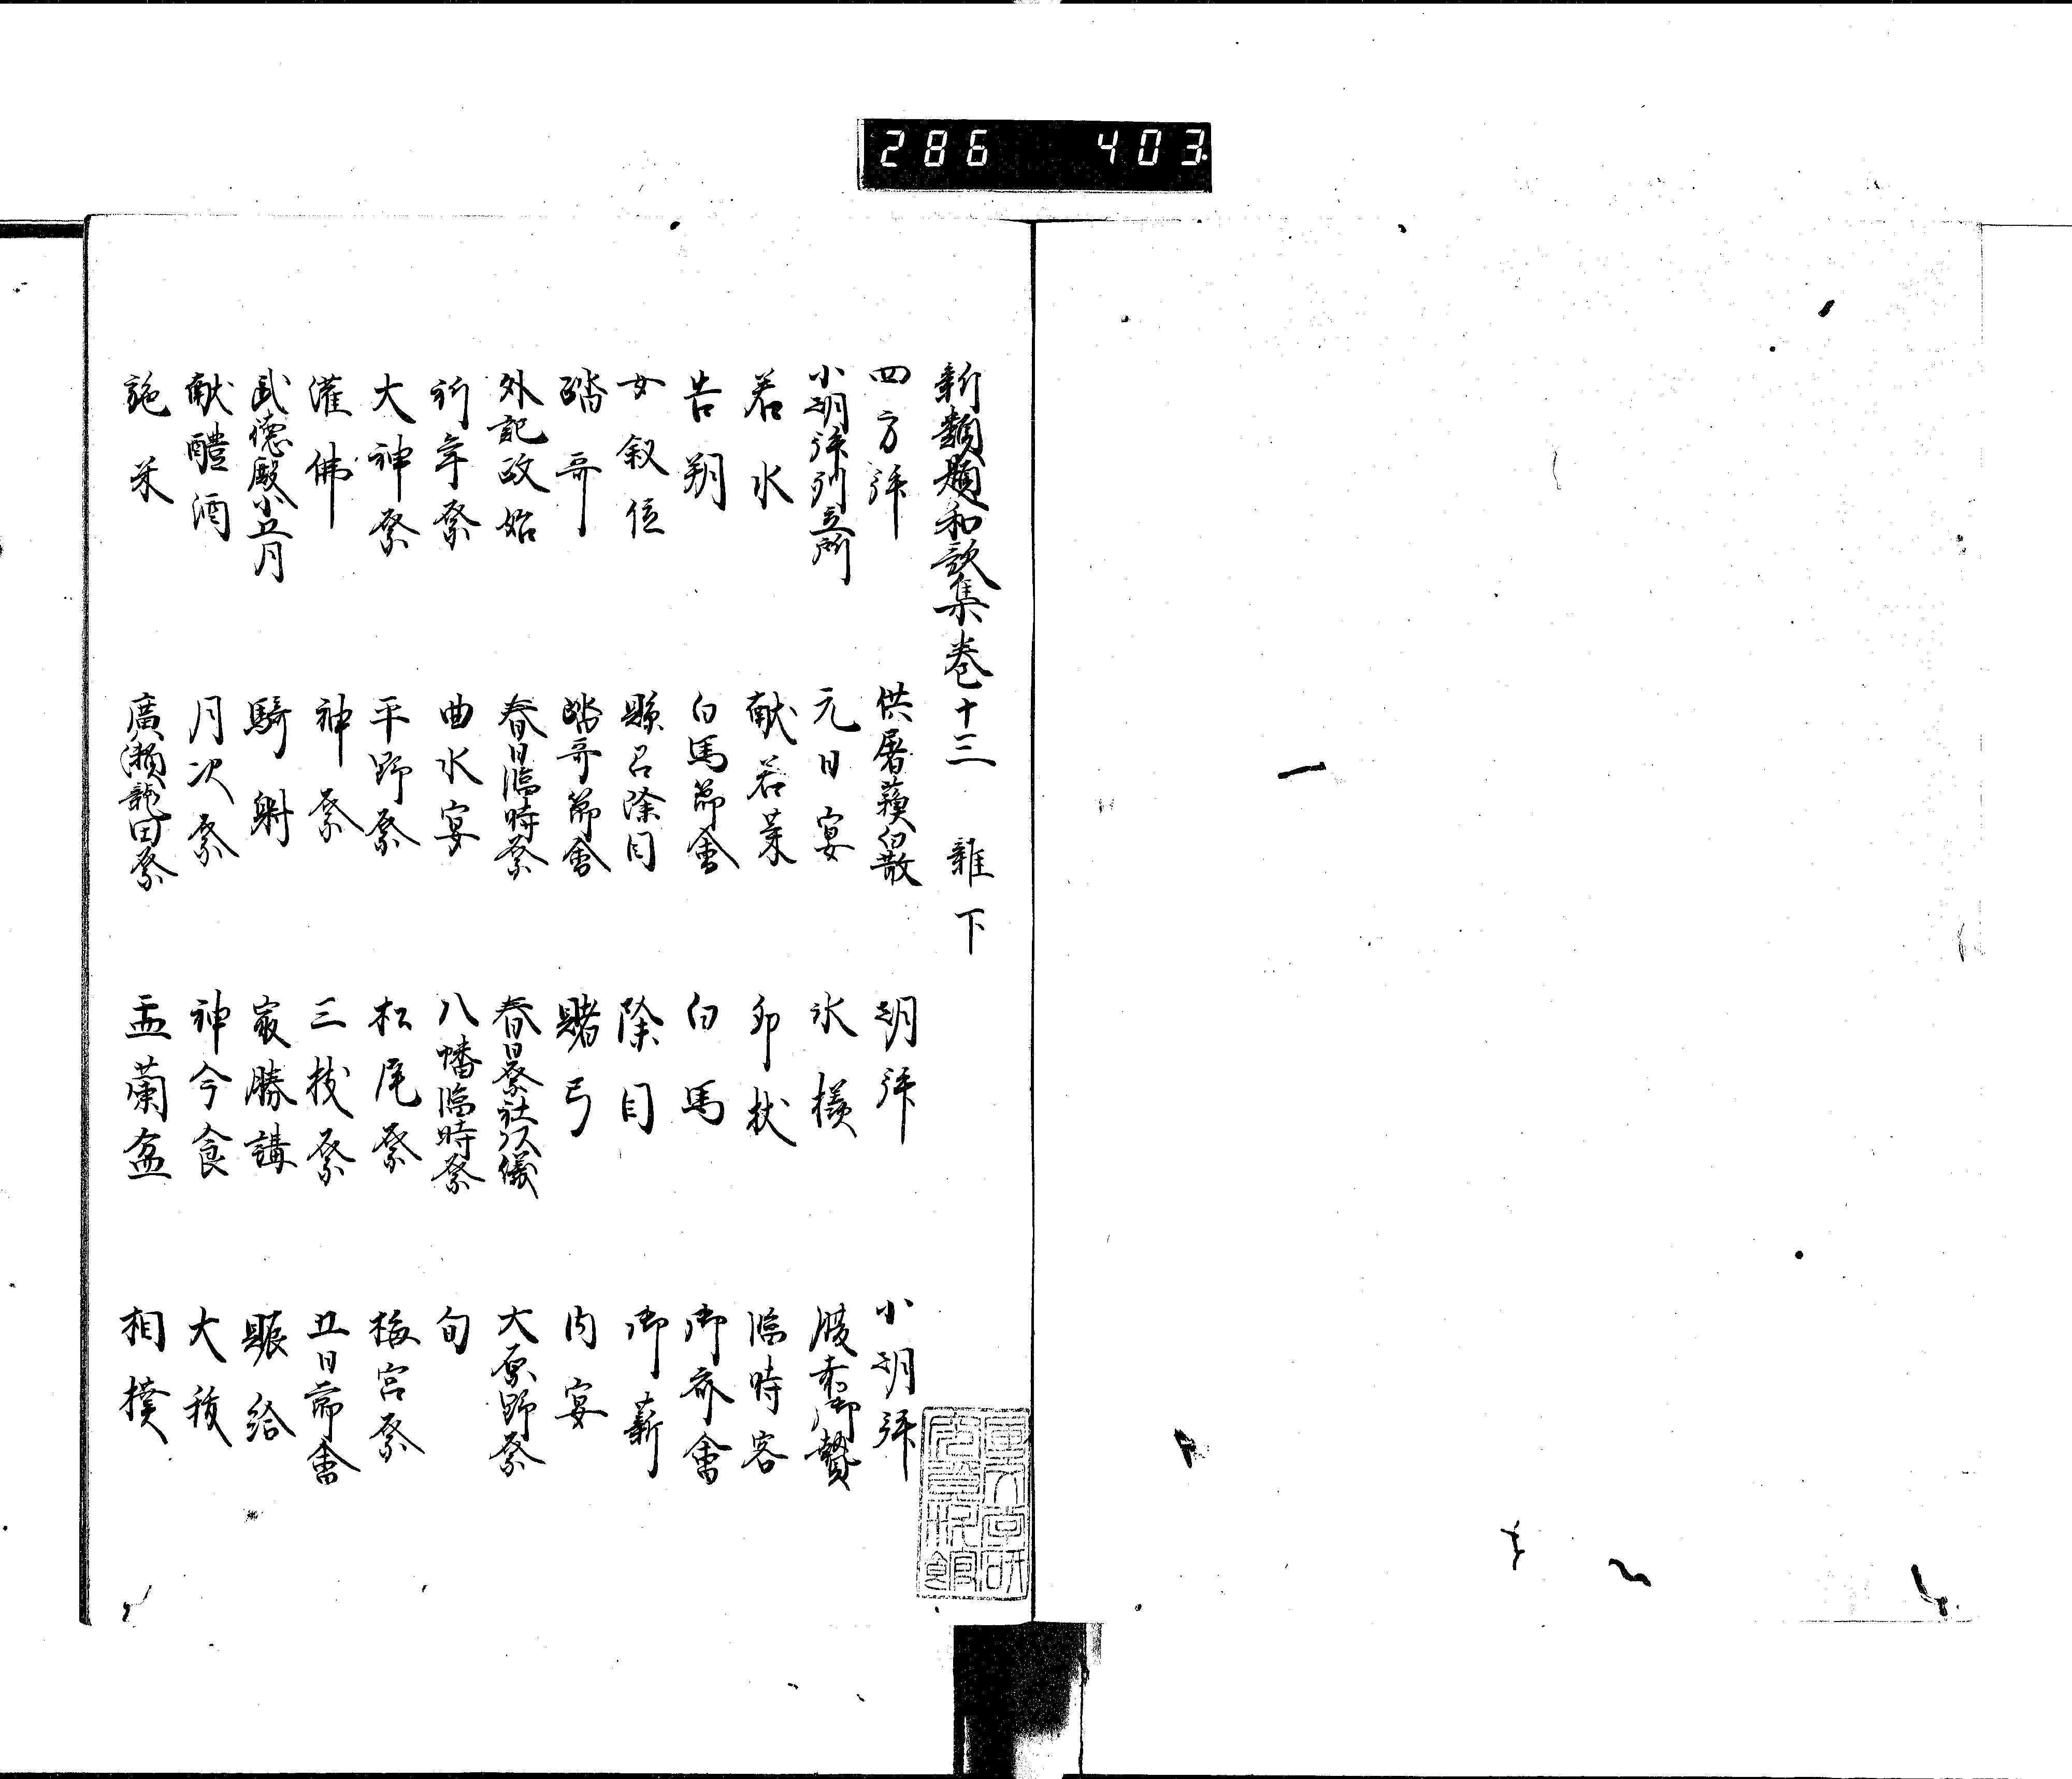 286 403
新類題和歌集巻十三 雑下
四方拝 供屠蘇白散 朝拝 小朝拝
小朝拝列立所 元日宴 氷様 腹赤御贄
若水 献若菜 卯杖 臨時客
告朔 白馬節會 白馬 御斎會
女叙位 縣召除目 除目 御薪
踏哥 踏哥節會 賭弓 内宴
外記政始 春日臨時祭 春日祭社頭儀 大原野祭
祈年祭 曲水宴 八幡臨時祭 旬
大神祭 平野祭 松尾祭 梅宮祭
灌佛 神祭 三枝祭 五日節會
武徳殿小五月 騎射 最勝講 賑給
献醴酒 月次祭 神今食 大祓
施米 廣瀬龍田祭 盂蘭盆 相撲